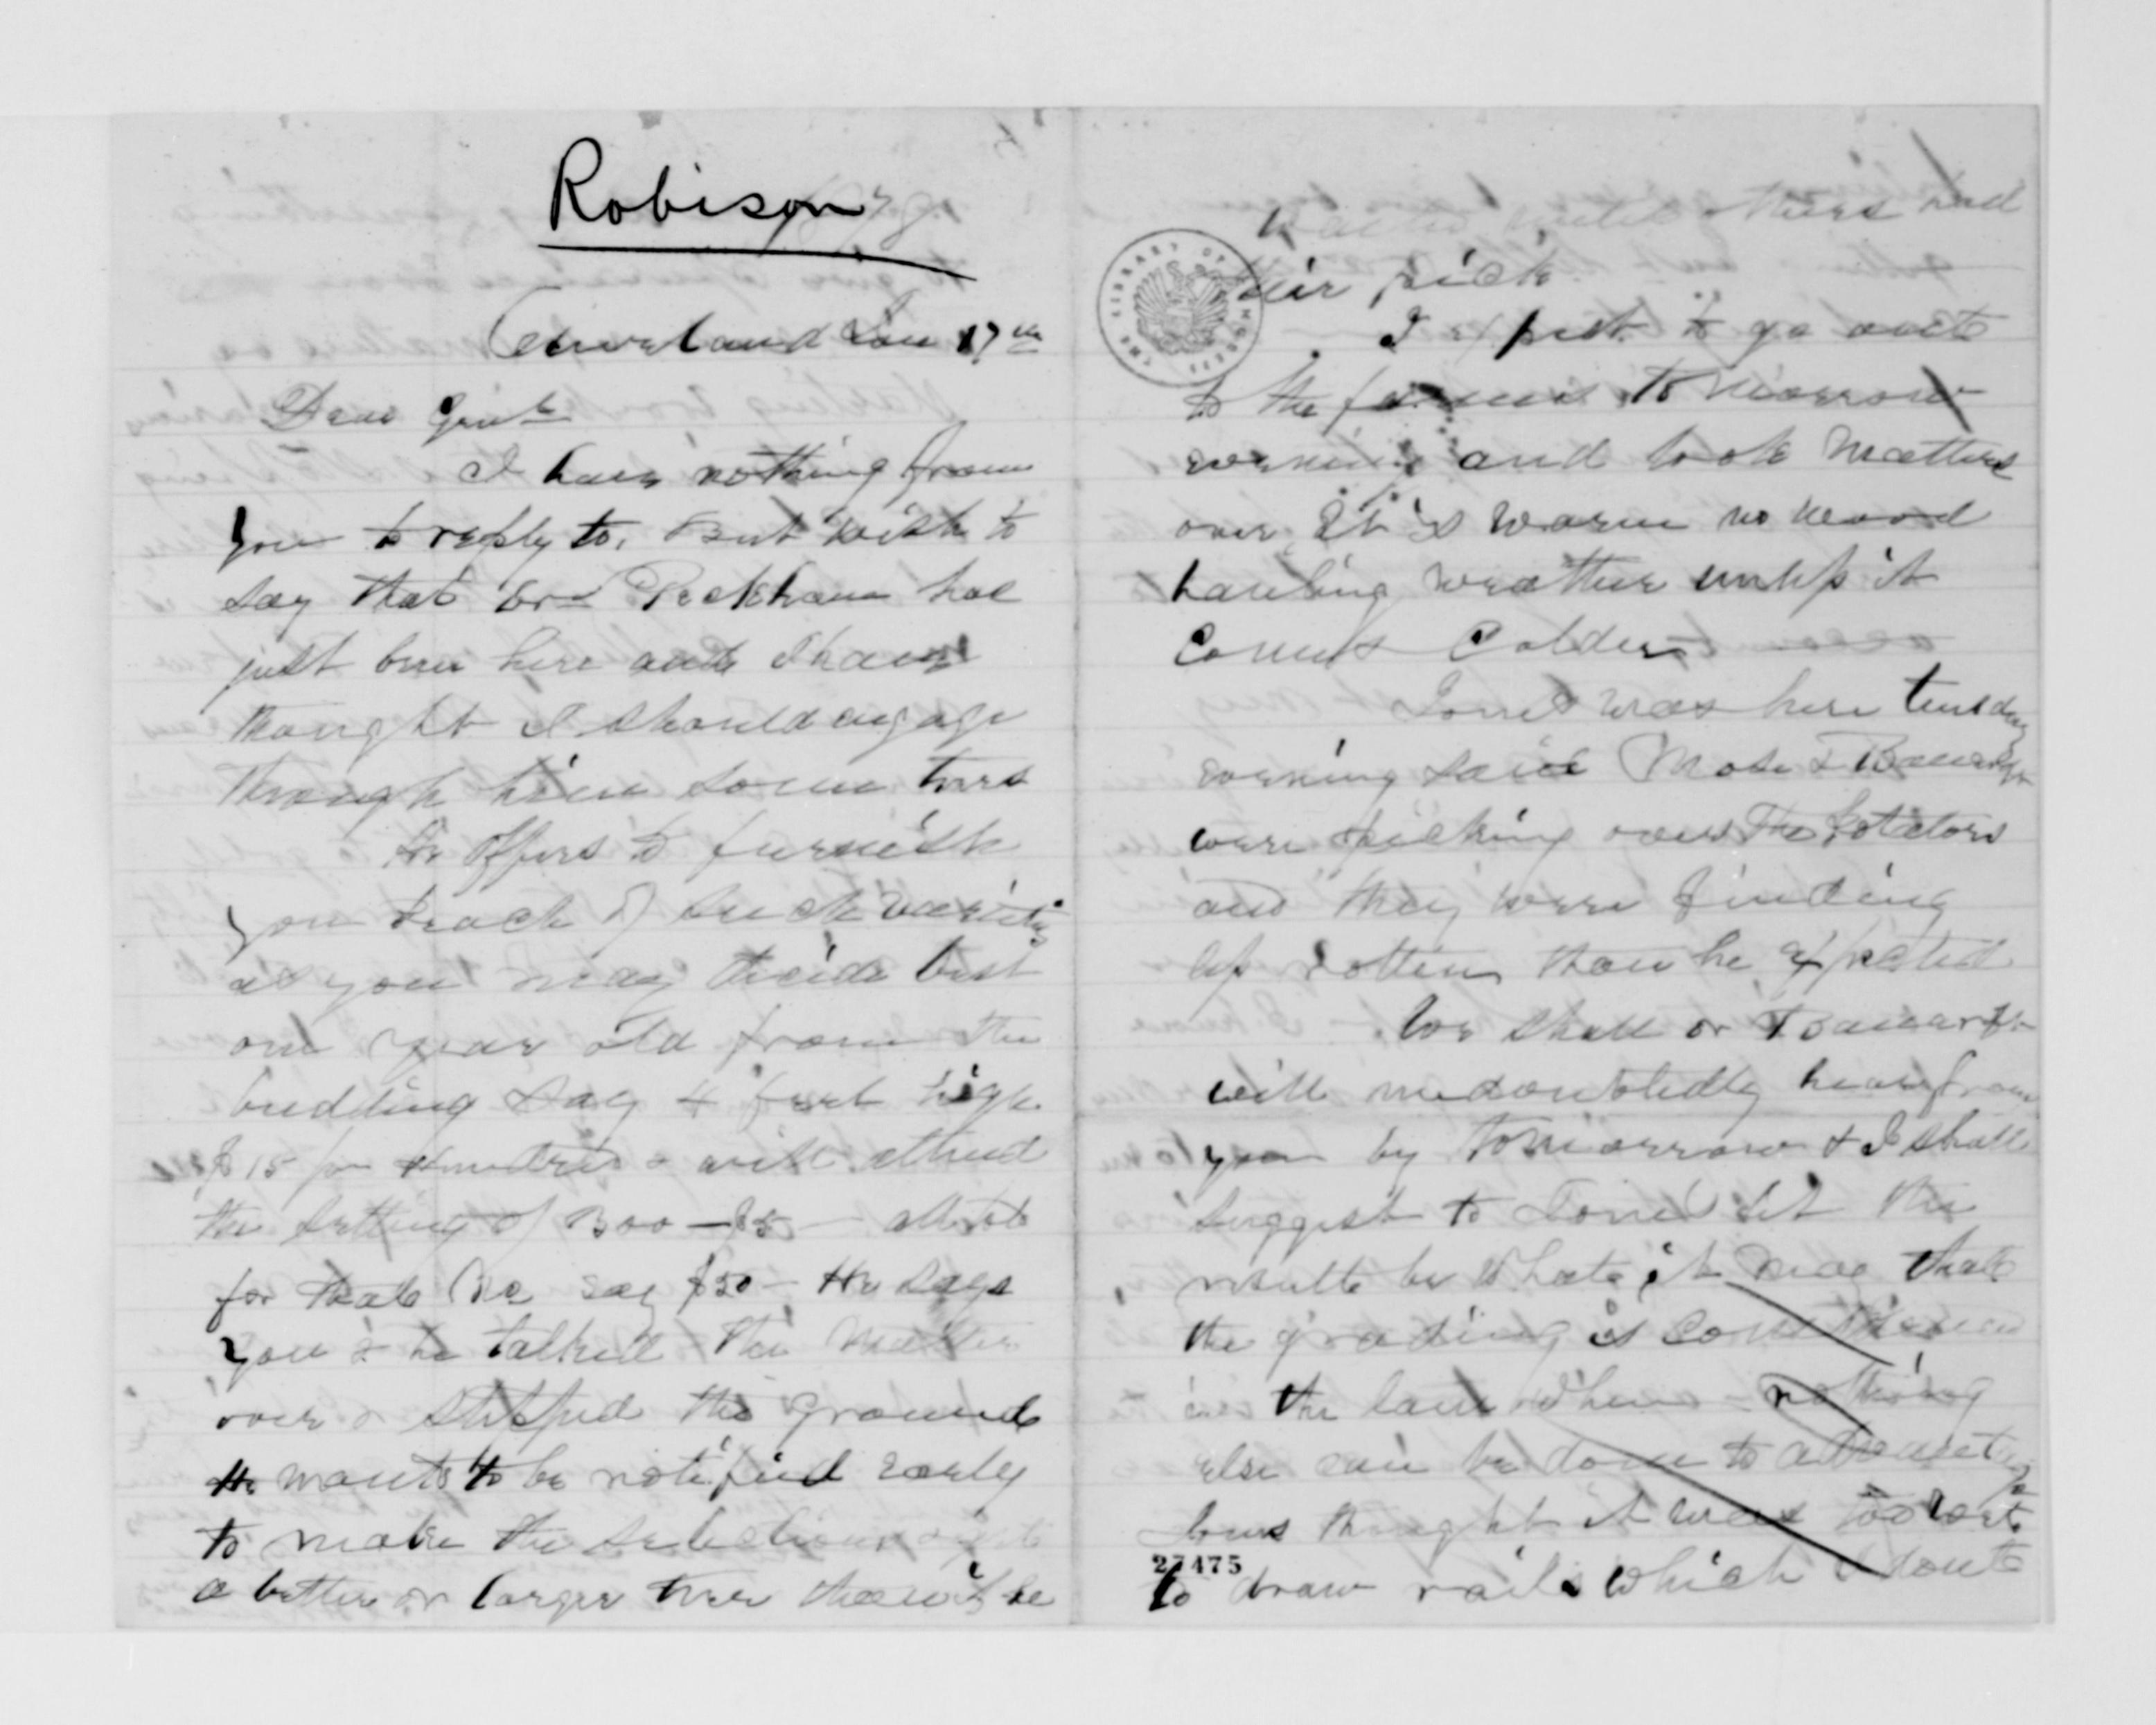 Robison
Cleveland Jan 17th
Dear Genl
I have nothing from
you to reply to, But wish to
say that Geo Peckham has
just been here and I have
thought I should engage
through him some trees
He offers to furnish
you Peach of such varieties
as you may decide best
one year old from the
budding say 4 feet high
$15 per Hundred & will attend
the setting of 300 — $5 — all told
for that No say $50 — He says
you & he talked the matter
over & stepped the ground
He wants to be notified early
to make the selections &
a better or larger tree than if he
waited until others had
their pick
I expect to go out
to the farm tomorrow
evening and look matters
over It is warm no wood
hauling weather unless it
comes Colder
Jones was here tuesday
evening said Mose &
were picking over the Potatoes
and they were finding
less rotten than he expected
We shall or
will undoubtedly hear from
you by tomorrow & I shall
suggest to Jones let the
result be what it may that
the grading is
in the lane when nothing
else can be done to advantage
Jones thought it was too
to draw rails which I dont
27475
THE LIBRARY OF CONGRESS